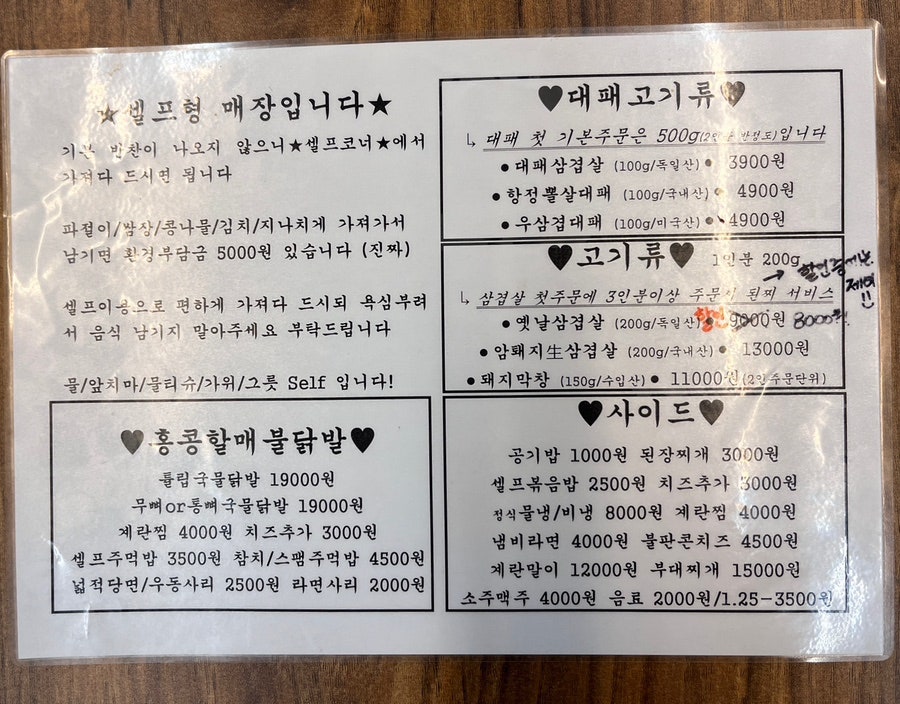 ★셀프형 매장입니다★
기본 반찬이 나오지 않으니★셀프코너★에서
가져다 드시면 됩니다
파절이/쌈장/콩나물/김치/지나치게 가져가서
남기면 환경부담금 5000원 있습니다 (진짜)
셀프이용으로 편하게 가져다 드시되 욕심부려
서 음식 남기지 말아주세요 부탁드립니다
물/앞치마/물티슈/가위/그릇 Self 입니다!
♥홍콩할매 불닭발♥
튤립국물닭발 19000원
무뼈or통뼈국물닭발 19000원
계란찜 4000원 치즈추가 3000원
셀프주먹밥 3500원 참치/스팸주먹밥 4500원
넓적당면/우동사리 2500원 라면사리 2000원
♥대패고기류♥
↳ 대패 첫 기본주문은 500g(2인분반정도)입니다
● 대패삼겹살 (100g/독일산) ● 3900원
● 항정뽈살대패 (100g/국내산) ● 4900원
● 우삼겹대패 (100g/미국산) ● 4900원
♥고기류♥ 1인분 200g
→ 할인중에는
제외
↳ 삼겹살 첫주문에 3인분이상 주문시 된찌 서비스
● 옛날삼겹살 (200g/독일산) 할인 ● 9000원 8000원
● 암퇘지生삼겹살 (200g/국내산) ● 13000원
● 돼지막창 (150g/수입산) ● 11000원(2인주문단위)
♥사이드♥
공기밥 1000원 된장찌개 3000원
셀프볶음밥 2500원 치즈추가 3000원
정식물냉/비냉 8000원 계란찜 4000원
냄비라면 4000원 불판콘치즈 4500원
계란말이 12000원 부대찌개 15000원
소주맥주 4000원 음료 2000원/1.25-3500원